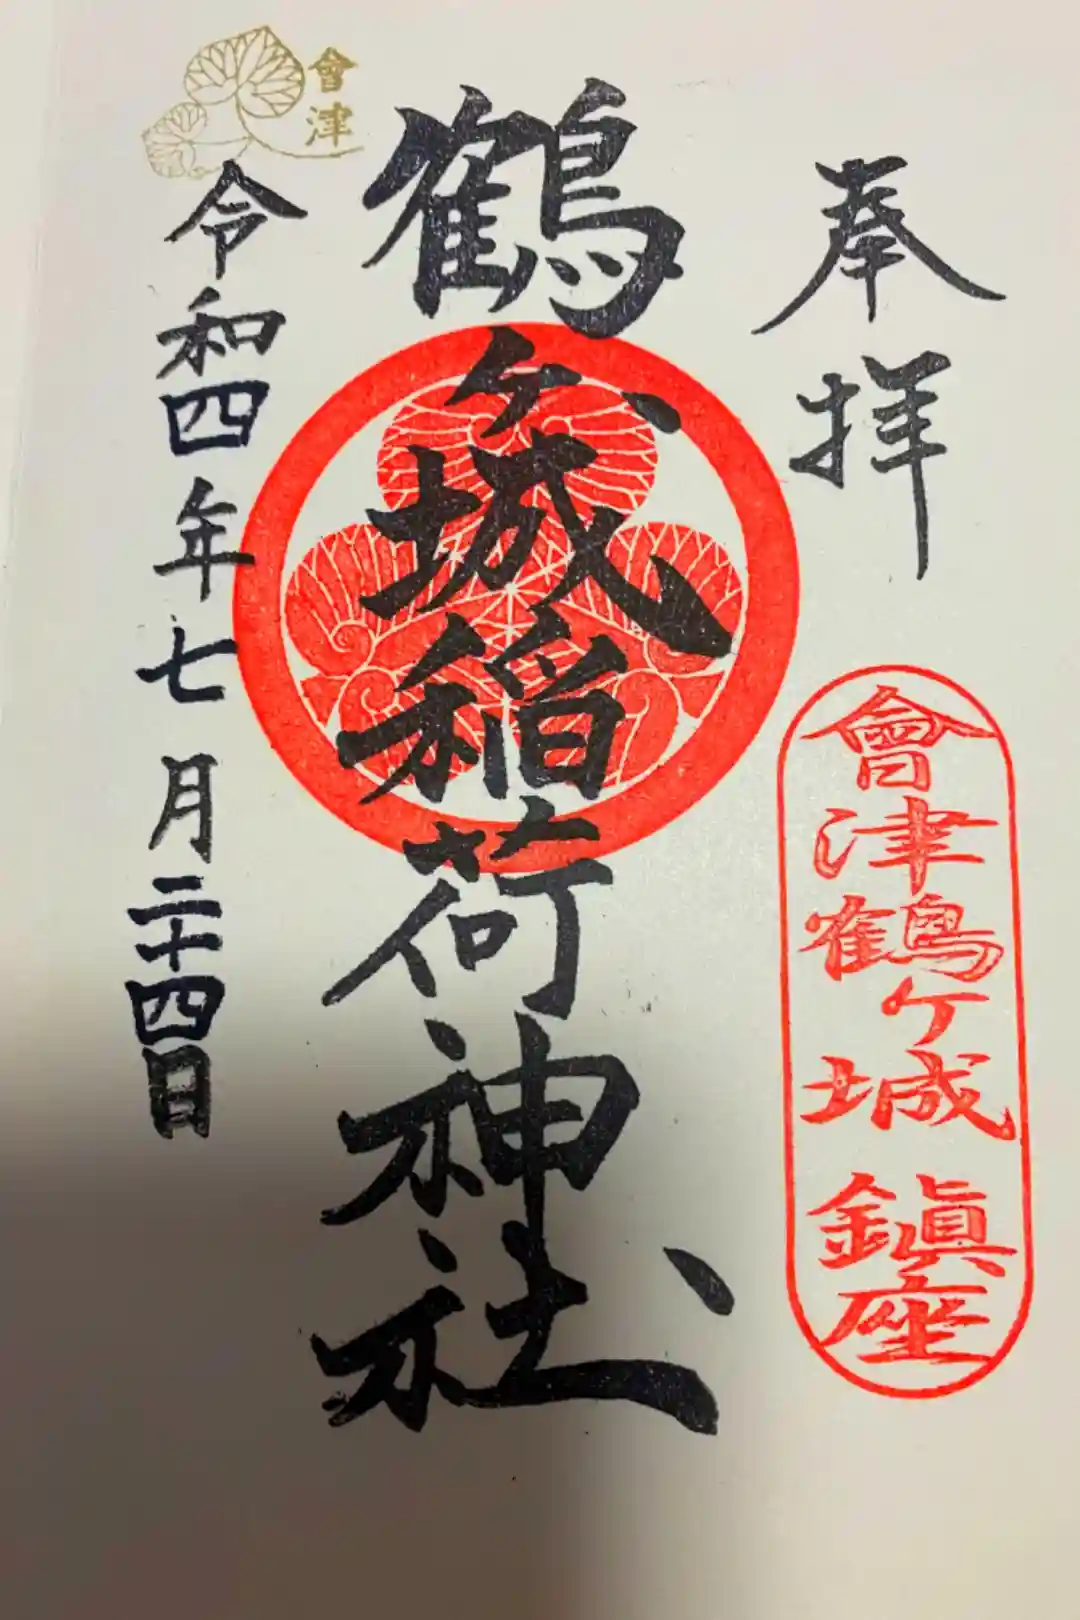 奉拝
會津鶴ケ城鎮座
鶴ケ城稲荷神社
會津
令和四年七月二十四日